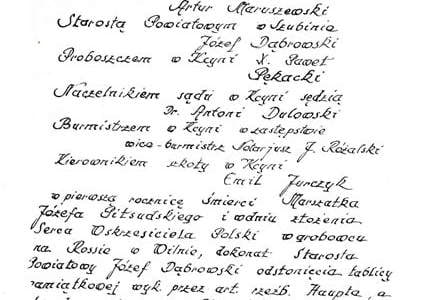 Artur Maruszewski
Starostą Powiatowym w Szubinie
Józef Dąbrowski
Proboszczem w Kcyni X. Paweł
Pękacki
Naczelnikiem sądu w Kcyni sędzia
Dr. Antoni Dulowski
Burmistrzem w Kcyni w zastępstwie
wice-burmistrz Solarjusz J. Różalski
Kierownikiem szkoły w Kcyni
Emil Jurczyk
w pierwszą rocznicę śmierci Marszałka
Józefa Piłsudskiego i w dniu złożenia
Serca Wskrzesiciela Polski w grobowcu
na Rossie w Wilnie, dokonał Starosta
Powiatowy Józef Dąbrowski odsłonięcia tablicy
pamiątkowej wyk przez art. rzeźb. Haupta, a